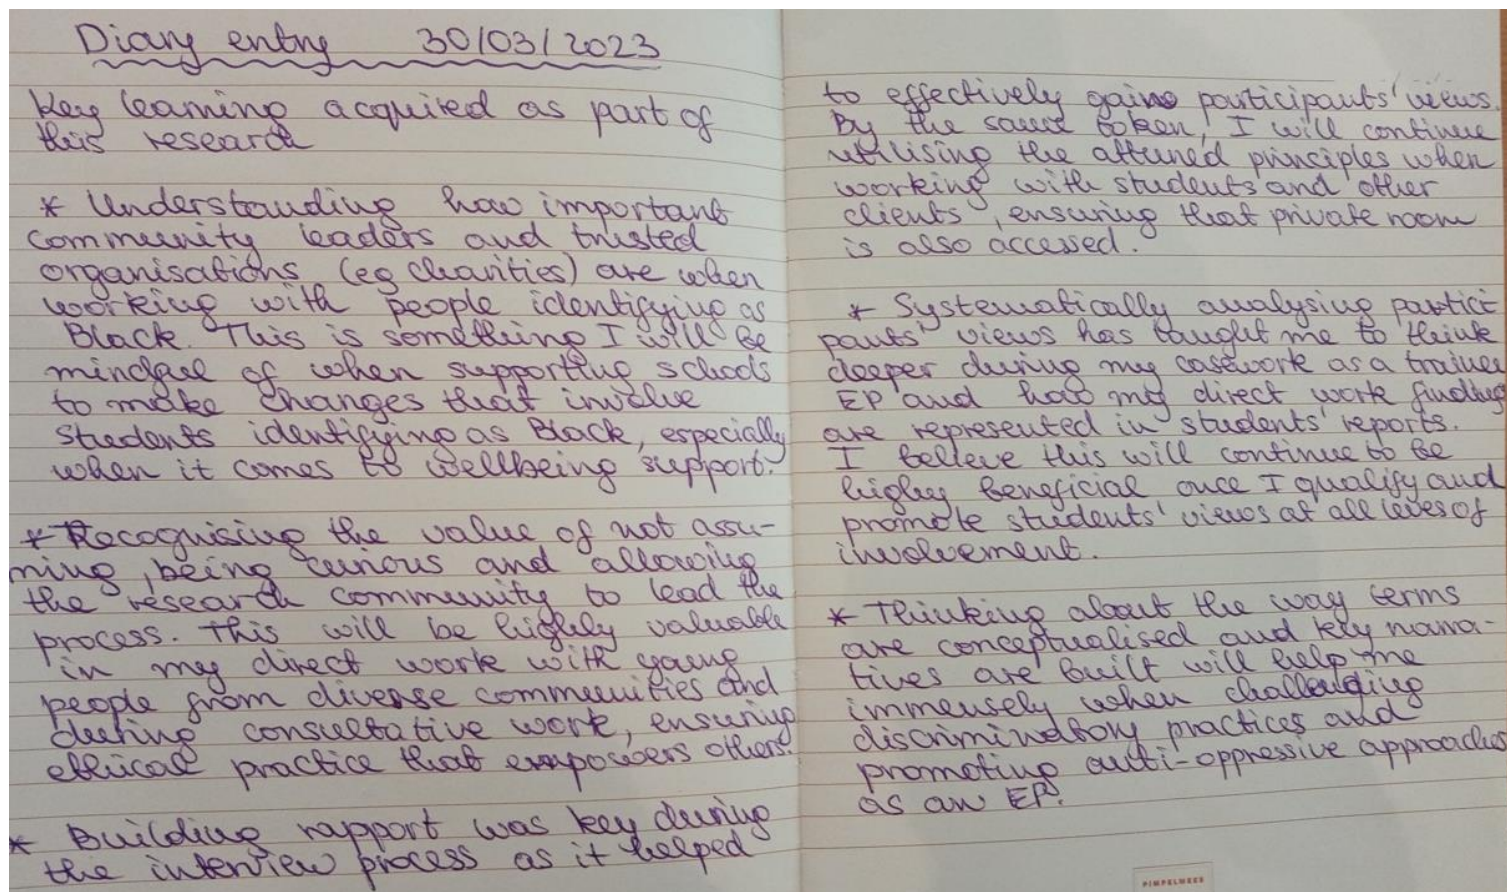 Diary entry 30/03/2023
Key learning acquired as part of
this research
* Understanding how important
community leaders and trusted
organisations (eg charities) are when
working with people identifying as
Black. This is something I will be
mindful of when supporting schools
to make changes that involve
students identifying as Black, especially
when it comes to wellbeing support.
* Recognising the value of not assu-
ming, being curious and allowing
the research community to lead the
process. This will be highly valuable
in my direct work with young
people from diverse communities and
during consultative work, ensuring
ethical practice that empowers others.
* Building rapport was key during
the interview process as it helped
to effectively gain participants' views.
By the same token, I will continue
utilising the attuned principles when
working with students and other
clients, ensuring that private room
is also accessed.
* Systematically analysing partici
pants' views has taught me to think
deeper during my casework as a trainee
EP and how my direct work findings
are represented in students' reports.
I believe this will continue to be
highly beneficial once I qualify and
promote students' views at all leves of
involvement.
* Thinking about the way terms
are conceptualised and key narra-
tives are built will help me
immensely when challenging
discriminatory practices and
promoting anti-oppressive approaches
as an EP.
PIMPELMEES